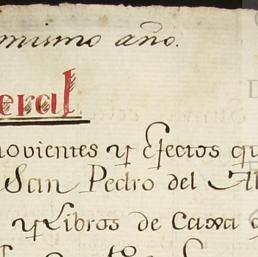 mismo año.
eral
ovientes y Efectos qu
San Pedro del Al
y Libros de Caxa